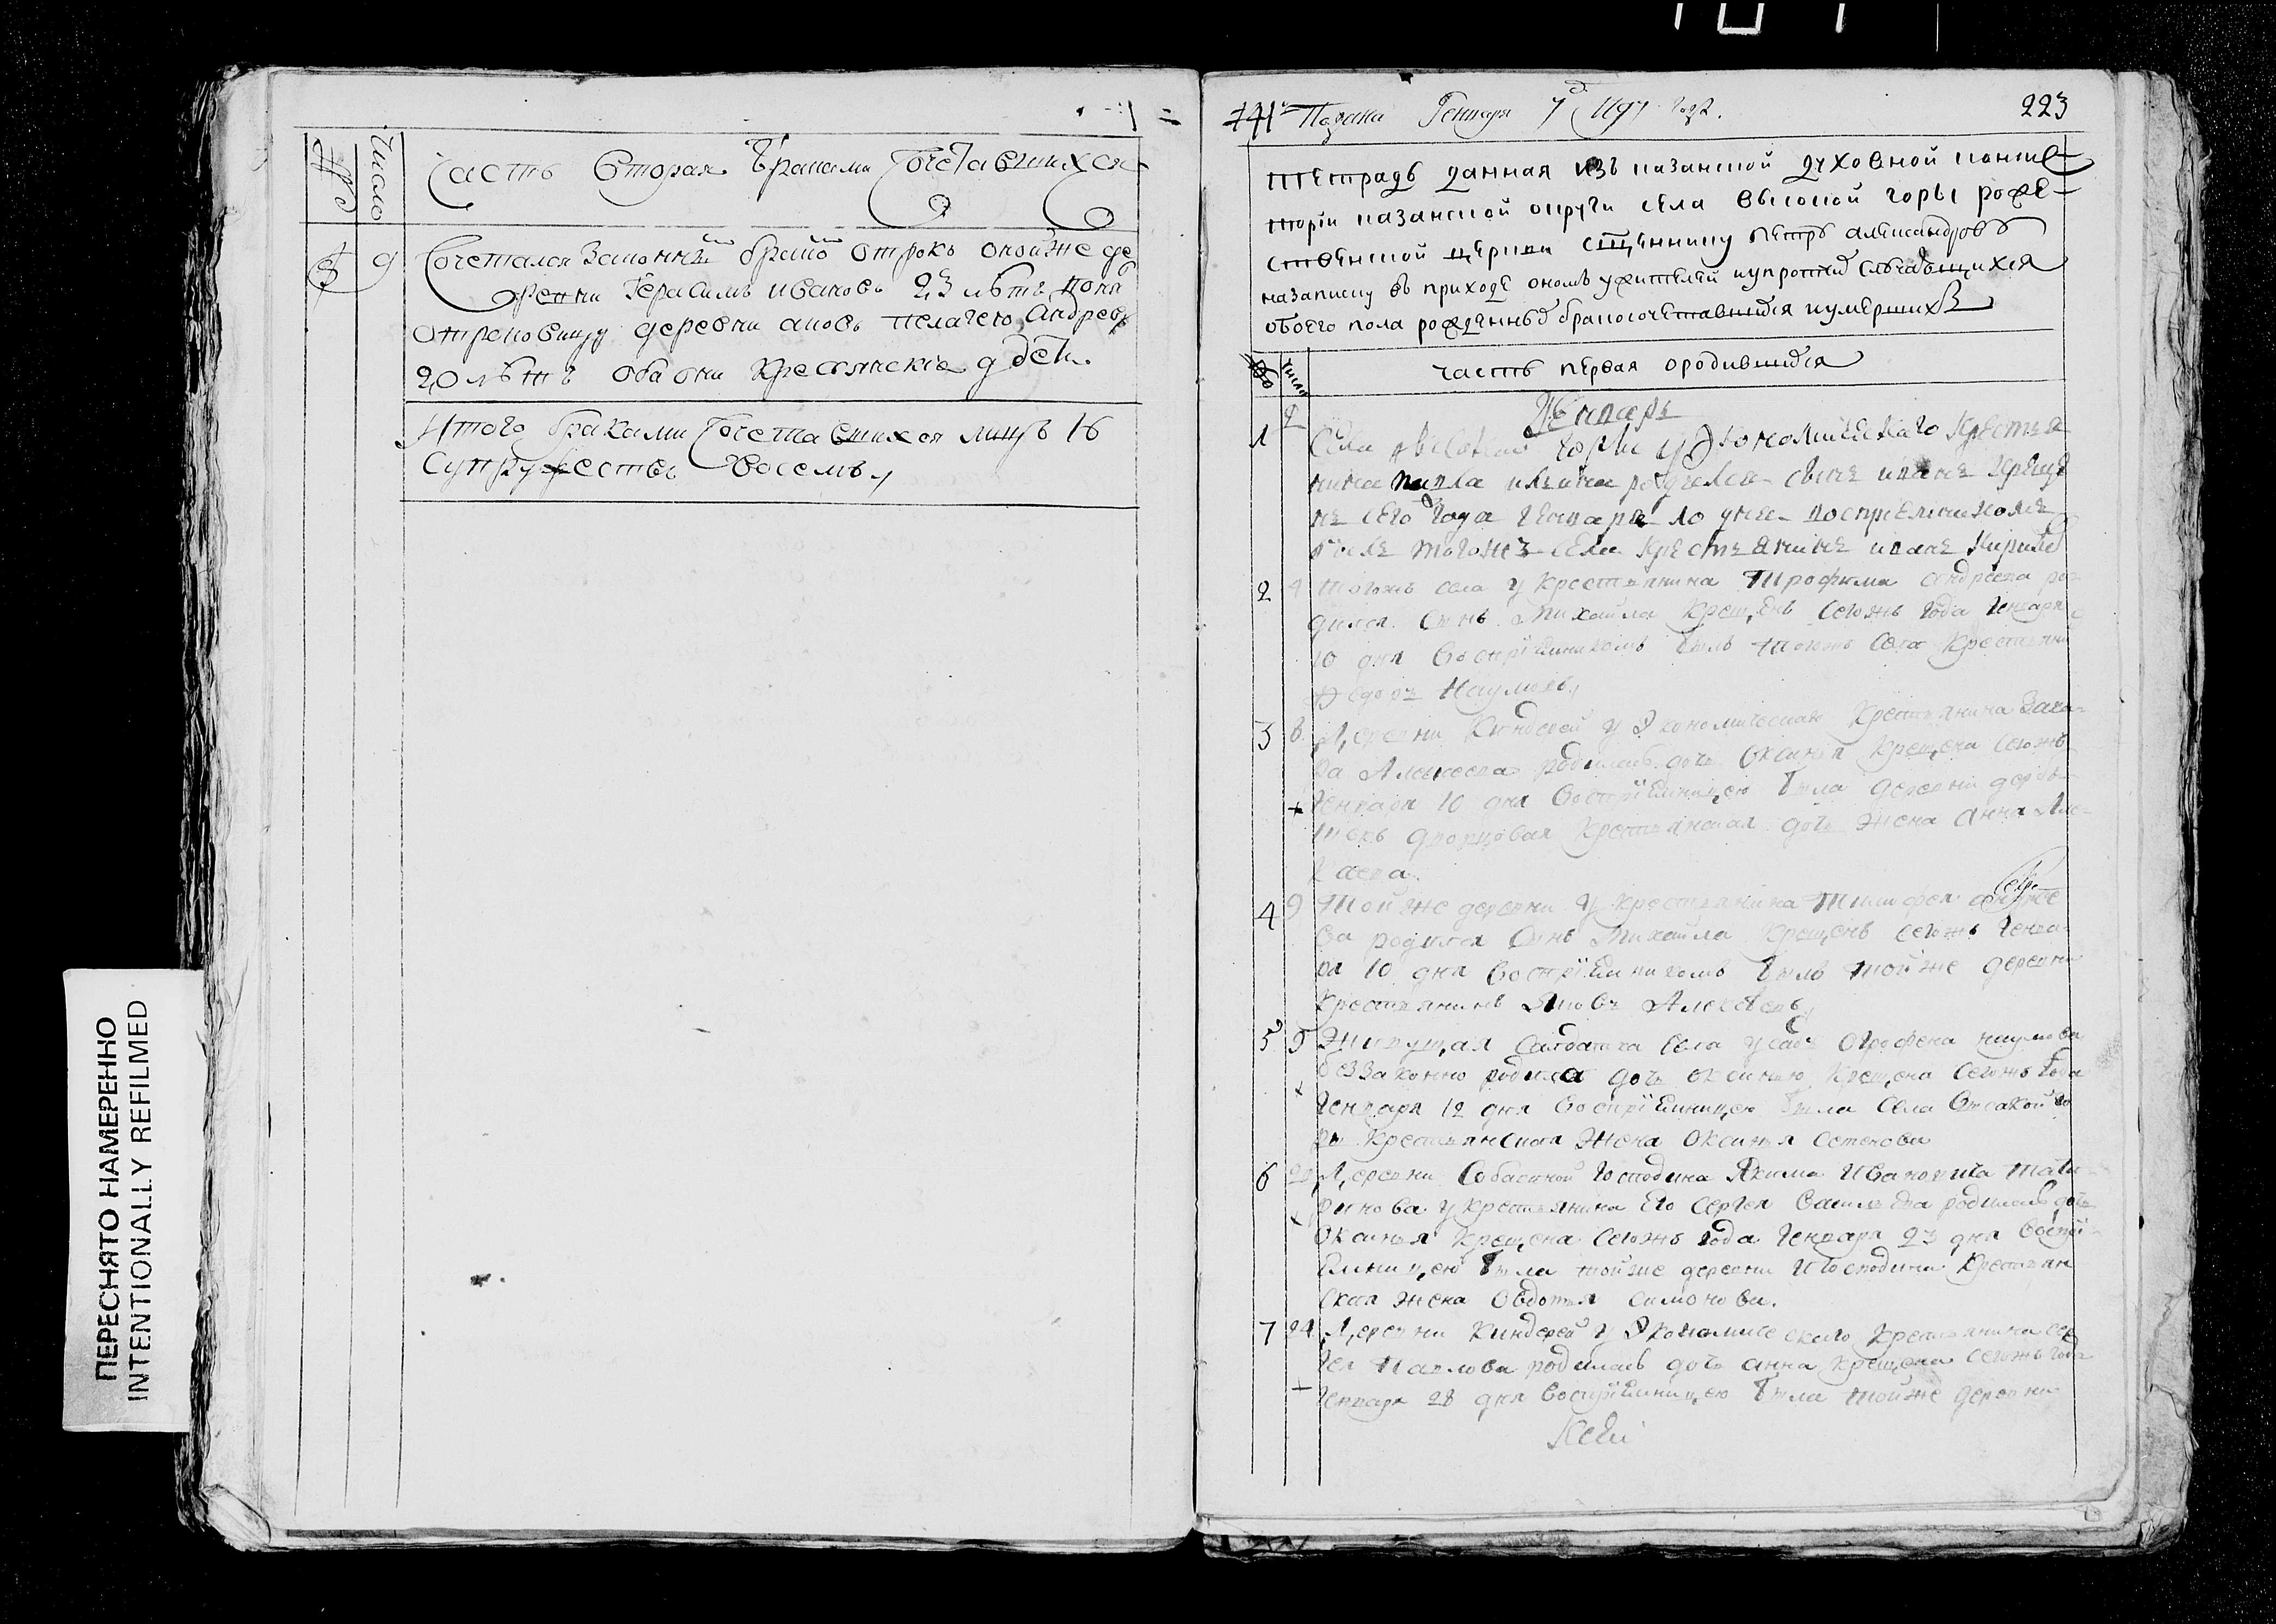 ПЕРЕСНЯТО НАМЕРЕННО
INTENTIONALLY REFILMED
№
Число
Часть Вторая Браками Сочетавшихся
8 9 Сочетался законнымъ бракомъ отрокъ оной же де
ревни Герасимъ Ивановъ 23 лѣтъ поня
отроковицу деревни Пелагею Андрее
20 лѣтъ оба они крестьянскіе дѣти.
Итого браками Сочетавшихся лицъ 16
Супружествъ восемь,
Подана Генваря 7 1797 года.
223
Тетрадь данная изъ казанской духовной консис
торіи казанской округи села высокой горы роже-
ственской церкви священнику петръ александровъ
на записку въ приходѣ ономъ жителей случившихся
обоего пола рожденныхъ бракосочетавшихся и умерших
№
число
часть первая о родившихся
Генварь
1 2 Села высокой горы у экономического крестья
нина ильина родился сынъ иванъ креще
нъ сего года генваря 10 дня воспріемникомъ
былъ тогожъ села крестьянинъ иванъ Кирил
2 4 тогожъ села у крестьянина Трофима андреева ро-
дился сынъ Михайла крещенъ сегожъ года генваря
10 дня воспріемникомъ былъ тогожъ села крестьяни
Ѳедоръ Наумовъ,
3 8 Деревни Киндерей у экономическаго крестьянина Заха-
ра Алексеева родилась дочь Оксинья крещена сегожъ
генваря 10 дня воспріемницею была деревни
дворцовая крестьянская жена Анна
4 9 Той же деревни у крестьянина Тимофея
ва родился сынъ Михайла крещенъ сегожъ генва-
ря 10 дня воспріемникомъ былъ той же деревни
крестьянинъ Яковъ Алексѣевъ,
5 9 Живущая салдатка села усадъ Огрофена наумова
беззаконно родила дочь оксинью крещена сегожъ года
генваря 12 дня воспріемницею была села Высакой го
ры крестьянская жена Оксинья
6 20 Деревни Собакиной Господина Якима Ивановича Тата-
ринова у крестьянина его Сергея Васильева родилась дочь
Оксинья крещена сегожъ года генваря 23 дня воспрі-
емницею была той же деревни и господина крестьян
ская жена Овдотья симонова.
7 24 Деревни Киндерей у экономическаго крестьянина Сер
гея Павлова родилась дочь анна крещена сегожъ года
генваря 28 дня воспріемницею была той же деревни